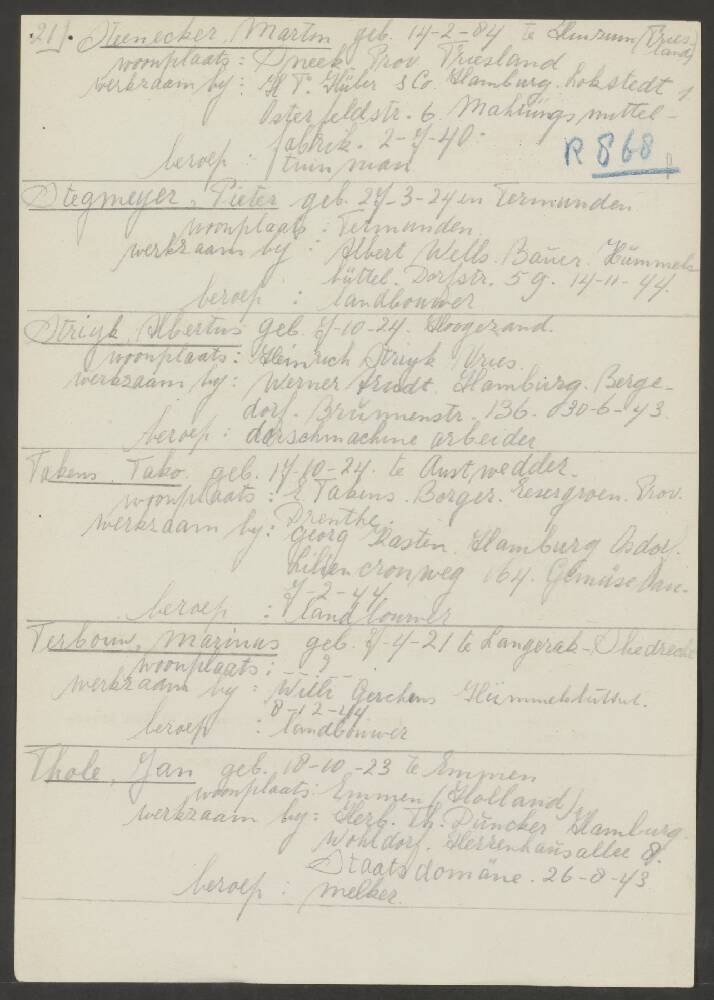 21). Steenecker, Marten geb. 14-2-84 te Hinzum (Fries-
land)
woonplaats: Sneek Prov. Friesland
werkzaam by: H. T. Hüber & Co. Hamburg. Lokstedt 1
Osterfeldstr. 6. Nahrungsmittel-
fabrik. 2-7-40.
beroep: tuinman
R 868
Stegmeyer, Pieter geb. 27-3-24 in Termunden.
woonplaats: Termunden
werkzaam by: Albert Wells. Bauer. Hummels-
büttel. Dorfstr. 59. 14-11-44.
beroep: landbouwer
Striyk, Albertus geb. 7-10-24. Hoogezand.
woonplaats: Heinrich Striyk Vries.
werkzaam by: Werner Arndt. Hamburg. Berge-
dorf. Brunnenstr. 136. 30-6-43.
beroep: dorschmachine arbeider
Takens, Tako. geb. 17-10-24. te Aunstwedder.
woonplaats: E. Takens. Borger. Prov.
Drenthe.
werkzaam by: Georg Kasten. Hamburg Osdorf.
Liliencronweg 164. Gemüse
7-2-44.
beroep: landbouwer
Terbouw, Marinus geb. 7-4-21 te Langerak-
woonplaats: - - ? - -
werkzaam by: Willi Gerckens Hümmelsbüttel.
8-12-44
beroep: landbouwer
Thole, Jan geb. 18-10-23 te Emmen
woonplaats: Emmen (Holland)
werkzaam by: Herb. Th. Duncker Hamburg.
Wohldorf. Herrenhausallee 8.
Staatsdomäne. 26-8-43
beroep: melker.